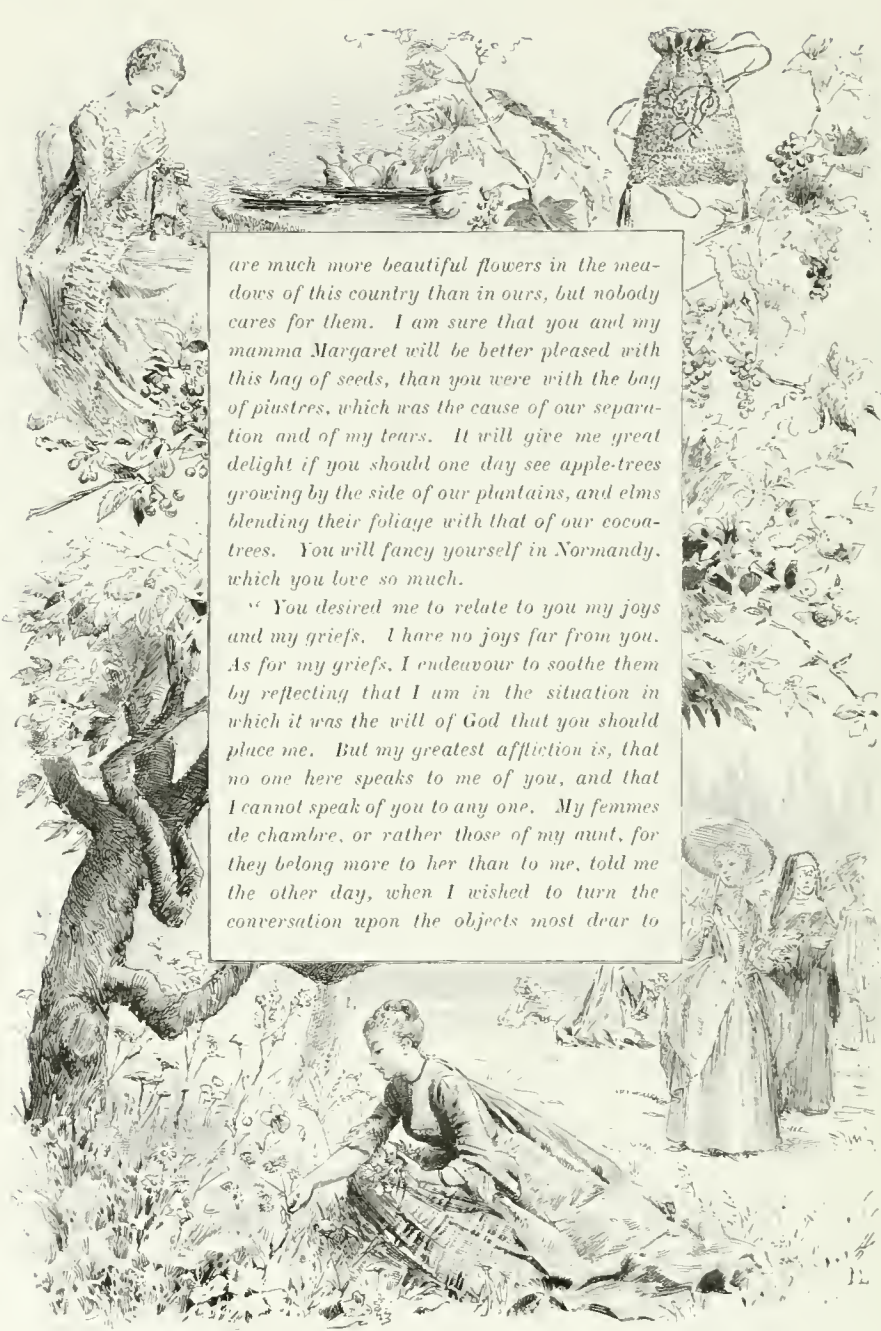 are much more beautiful flowers in the mea-
dows of this country than in ours, but nobody
cares for them. I am sure that you and my
mamma Margaret will be better pleased with
this bag of seeds, than you were with the bag
of piastres, which was the cause of our separa-
tion and of my tears. It will give me great
delight if you should one day see apple-trees
growing by the side of our plantains, and elms
blending their foliage with that of our cocoa-
trees. You will fancy yourself in Normandy,
which you love so much.
“ You desired me to relate to you my joys
and my griefs. I have no joys far from you.
As for my griefs, I endeavour to soothe them
by reflecting that I am in the situation in
which it was the will of God that you should
place me. But my greatest affliction is, that
no one here speaks to me of you, and that
I cannot speak of you to any one. My femmes
de chambre, or rather those of my aunt, for
they belong more to her than to me, told me
the other day, when I wished to turn the
conversation upon the objects most dear to